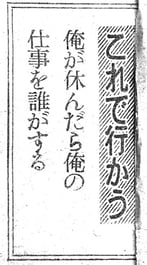 これで行かう
俺が休んだら俺の
仕事を誰がする